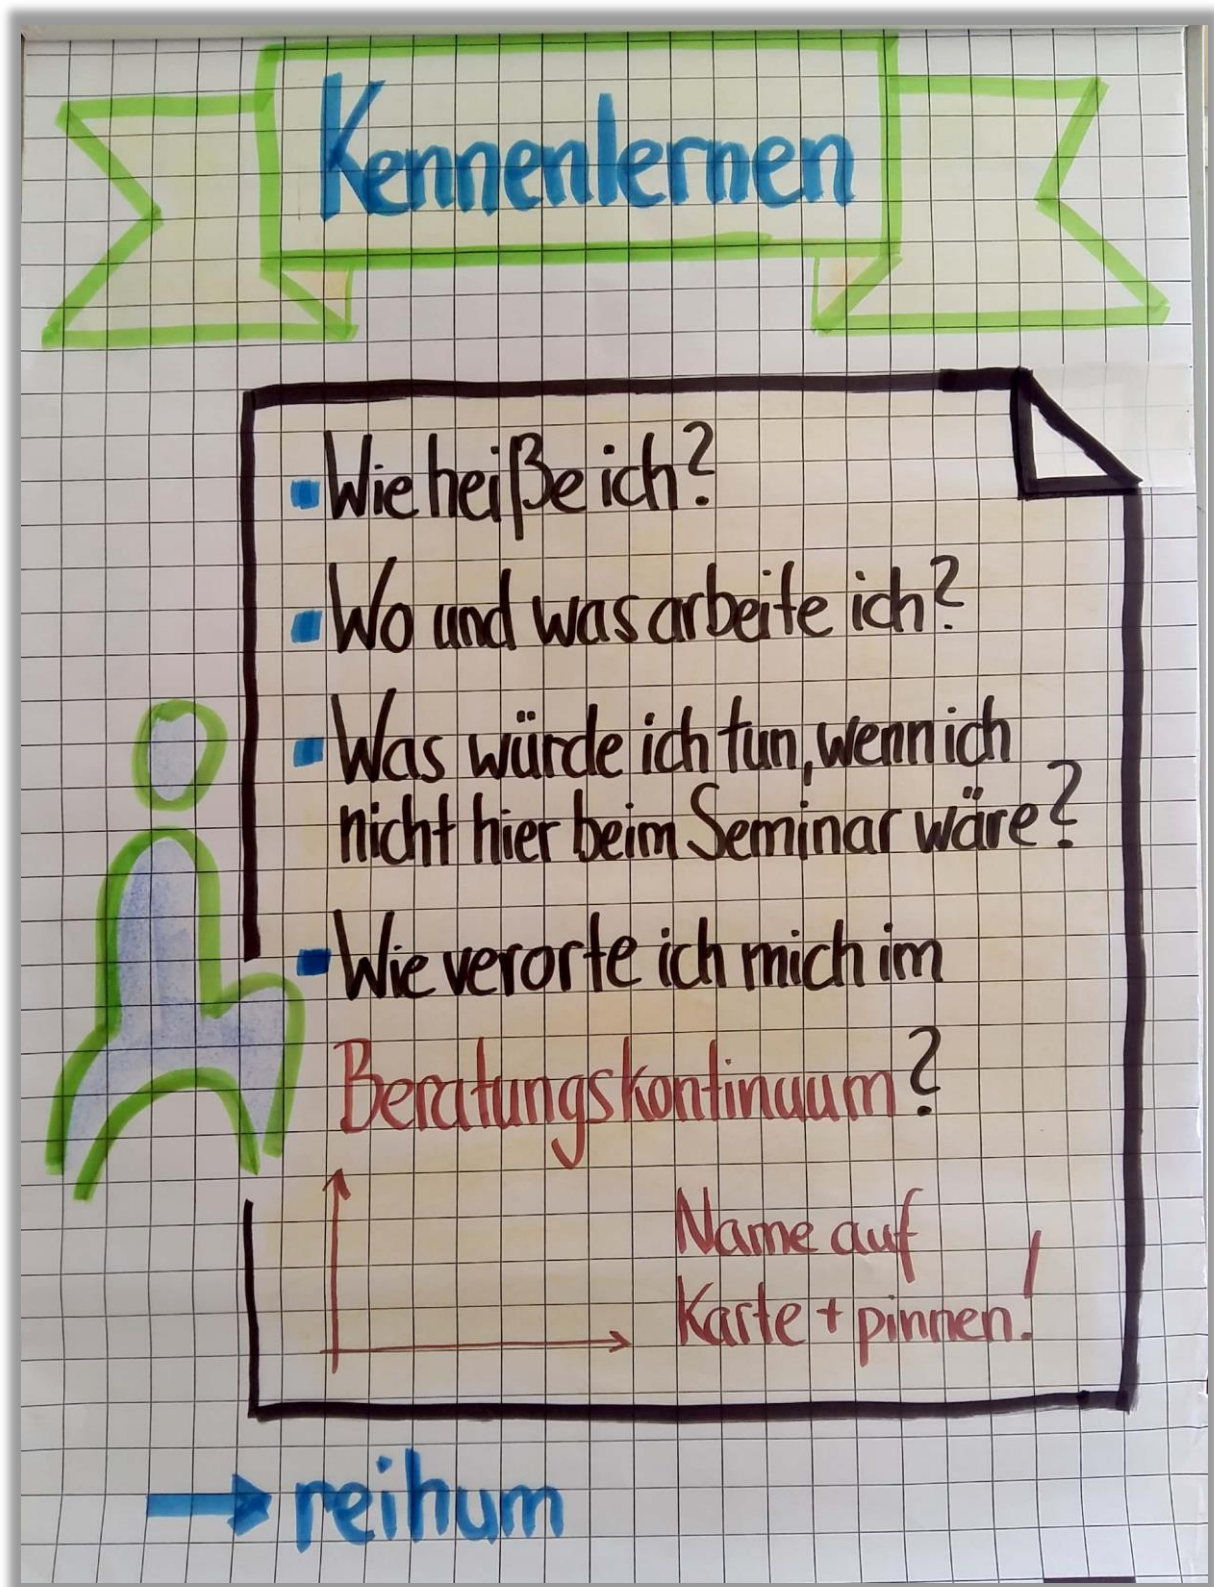 Kennenlernen
Wie heiße ich?
Wo und was arbeite ich?
Was würde ich tun, wenn ich
nicht hier beim Seminar wäre?
Wie verorte ich mich im
Beratungskontinuum?
Name auf
Karte + pinnen!
→ reihum